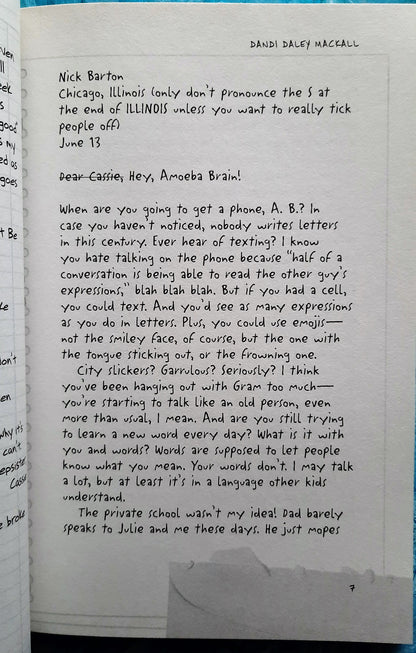 DANDI DALEY MACKALL
Nick Barton
Chicago, Illinois (only don't pronounce the S at
the end of ILLINOIS unless you want to really tick
people off)
June 13
Dear Cassie, Hey, Amoeba Brain!
When are you going to get a phone, A. B.? In
case you haven't noticed, nobody writes letters
in this century. Ever hear of texting? I know
you hate talking on the phone because "half of a
conversation is being able to read the other guy's
expressions," blah blah blah. But if you had a cell,
you could text. And you'd see as many expressions
as you do in letters. Plus, you could use emojis—
not the smiley face, of course, but the one with
the tongue sticking out, or the frowning one.
City slickers? Garrulous? Seriously? I think
you've been hanging out with Gram too much—
you're starting to talk like an old person, even
more than usual, I mean. And are you still trying
to learn a new word every day? What is it with
you and words? Words are supposed to let people
know what you mean. Your words don't. I may talk
a lot, but at least it's in a language other kids
understand.
The private school wasn't my idea! Dad barely
speaks to Julie and me these days. He just mopes
7